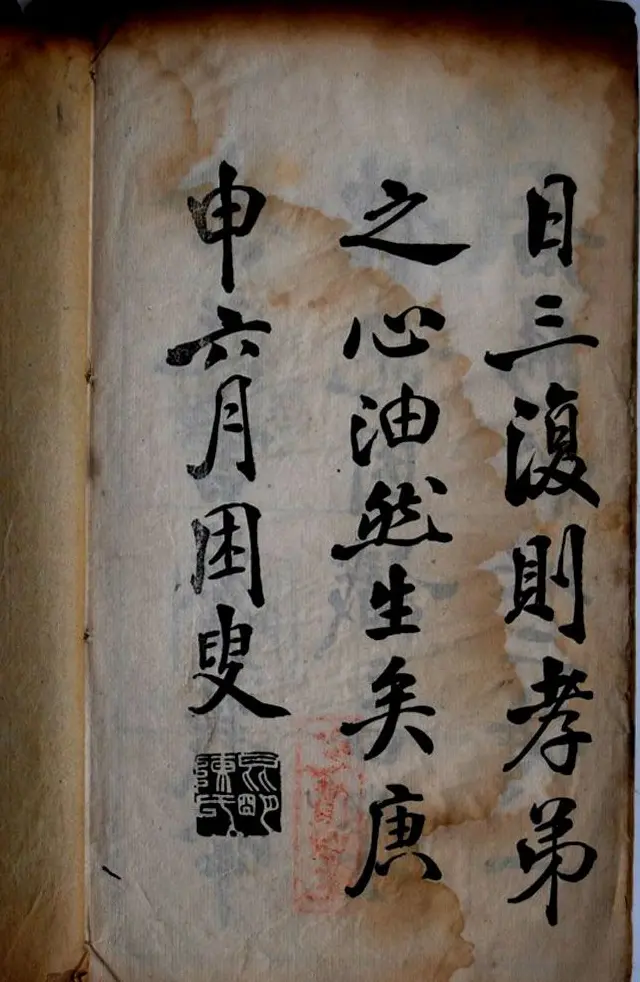 日三復則孝弟
之心油然生矣庚
申六月困叟